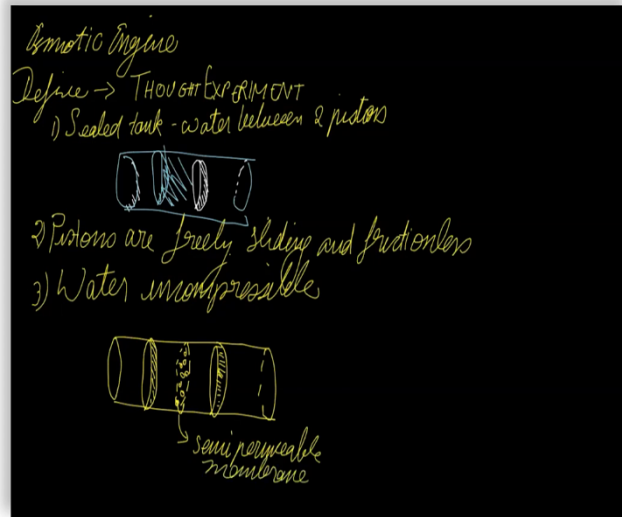 Osmotic Engine
Define → THOUGHT EXPERIMENT
1) Sealed tank - water between 2 pistons
2) Pistons are freely sliding and frictionless
3) Water incompressible
semi permeable
membrane